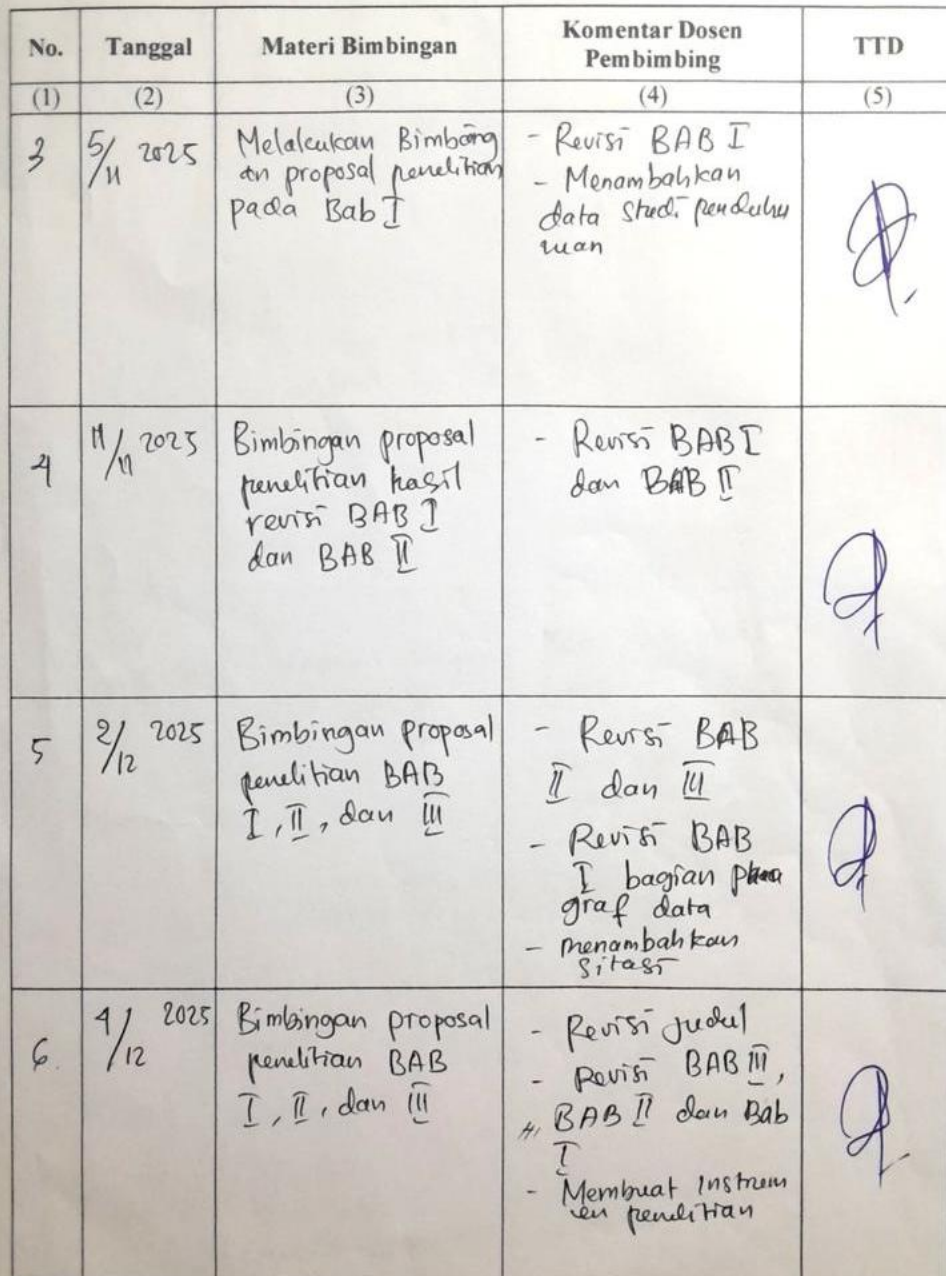 No. Tanggal Materi Bimbingan Komentar Dosen Pembimbing TTD
(1) (2) (3) (4) (5)
3
5/11 2025
Melakukan Bimbing
an proposal penelitian
pada Bab I
- Revisi BAB I
- Menambahkan
data studi pendahu
luan
4
11/11 2025
Bimbingan proposal
penelitian hasil
revisi BAB I
dan BAB II
- Revisi BAB I
dan BAB II
5
2/12 2025
Bimbingan proposal
penelitian BAB
I, II, dan III
- Revisi BAB
II dan III
- Revisi BAB
I bagian para
graf data
- menambahkan
sitasi
6.
4/12 2025
Bimbingan proposal
penelitian BAB
I, II, dan III
- Revisi judul
- Revisi BAB III,
BAB II dan Bab
I
- Membuat Instrum
en penelitian